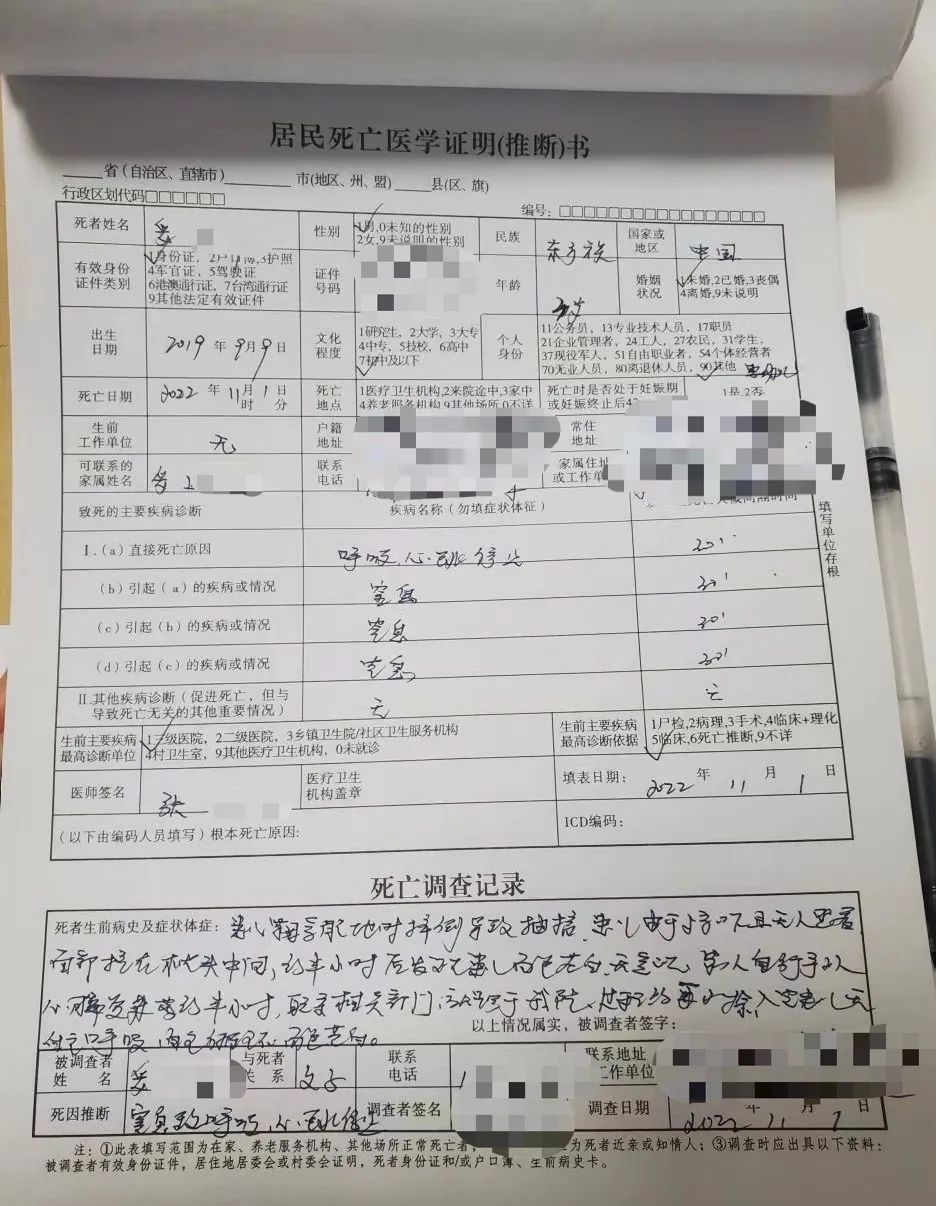 居民死亡医学证明(推断)书
省(自治区、直辖市) 市(地区、州、盟) 县(区、旗)
行政区划代码□□□□□□
编号:□□□□□□□□□□□□□□□□□
死者姓名 性别 1男,0未知的性别 2女,9未说明的性别 民族 东乡族 国家或地区 中国
有效身份证件类别 1身份证,2户口簿,3护照 4军官证,5驾驶证 6港澳通行证,7台湾通行证 9其他法定有效证件 证件号码 年龄 3岁 婚姻状况 1未婚,2已婚,3丧偶 4离婚,9未说明
出生日期 2019年9月9日 文化程度 1研究生,2大学,3大专 4中专,5技校,6高中 7初中及以下 个人身份 11公务员,13专业技术人员,17职员 21企业管理者,24工人,27农民,31学生, 37现役军人,51自由职业者,54个体经营者 70无业人员,80离退休人员,90其他
死亡日期 2022年11月1日 时 分 死亡地点 1医疗卫生机构,2来院途中,3家中 4养老服务机构,9其他场所,0不详 死亡时是否处于妊娠期或妊娠终止后42 1是,2否
生前工作单位 无 户籍地址 常住地址
可联系的家属姓名 联系电话 家属住址或工作单
致死的主要疾病诊断 疾病名称(勿填症状体征)
Ⅰ.(a)直接死亡原因 呼吸、心跳停止 30'
(b)引起(a)的疾病或情况 窒息 30'
(c)引起(b)的疾病或情况 窒息 30'
(d)引起(c)的疾病或情况 窒息 30'
Ⅱ.其他疾病诊断(促进死亡,但与导致死亡无关的其他重要情况) 无 无
生前主要疾病最高诊断单位 1三级医院,2二级医院,3乡镇卫生院/社区卫生服务机构 4村卫生室,9其他医疗卫生机构,0未就诊 生前主要疾病最高诊断依据 1尸检,2病理,3手术,4临床+理化 5临床,6死亡推断,9不详
医师签名 张 医疗卫生机构盖章 填表日期: 2022年11月1日
(以下由编码人员填写)根本死亡原因: ICD编码:
填写单位存根
死亡调查记录
死者生前病史及症状体症: 患儿 时摔倒导致抽搐,患儿由于 且无人照看
面部 在枕头中间,约半小时后发现患儿面色苍白,无意识,家人自行予以
心肺复苏 约半小时, 于我院, 约 入 患儿无
自主呼吸, 面色苍白。
以上情况属实,被调查者签字:
被调查者姓名 与死者关系 父子 联系电话 联系地址 工作单位
死因推断 窒息致呼吸、心跳停止 调查者签名 调查日期 2022年11月1日
注:①此表填写范围为在家、养老服务机构、其他场所正常死亡者; 为死者近亲或知情人;③调查时应出具以下资料:
被调查者有效身份证件,居住地居委会或村委会证明,死者身份证和/或户口簿、生前病史卡。